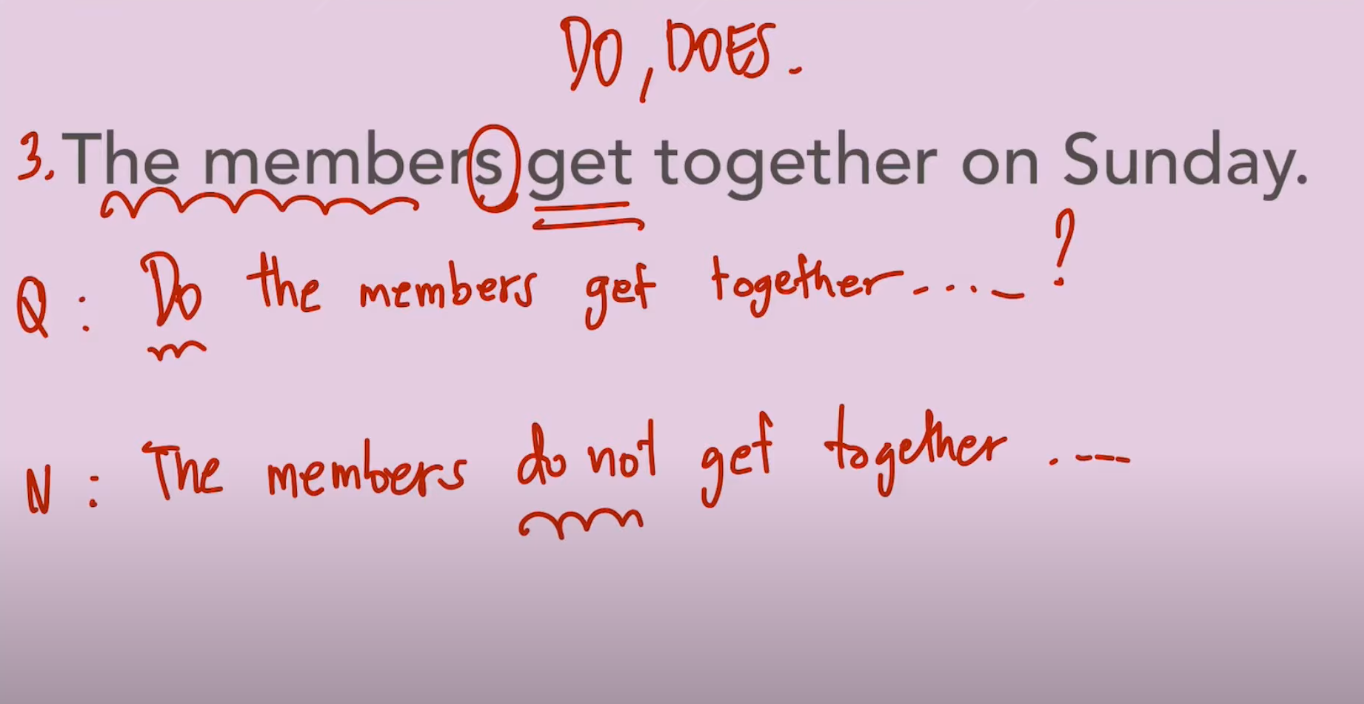 DO, DOES.
3. The members get together on Sunday.
Q: Do the members get together.....?
N: The members do not get together ....